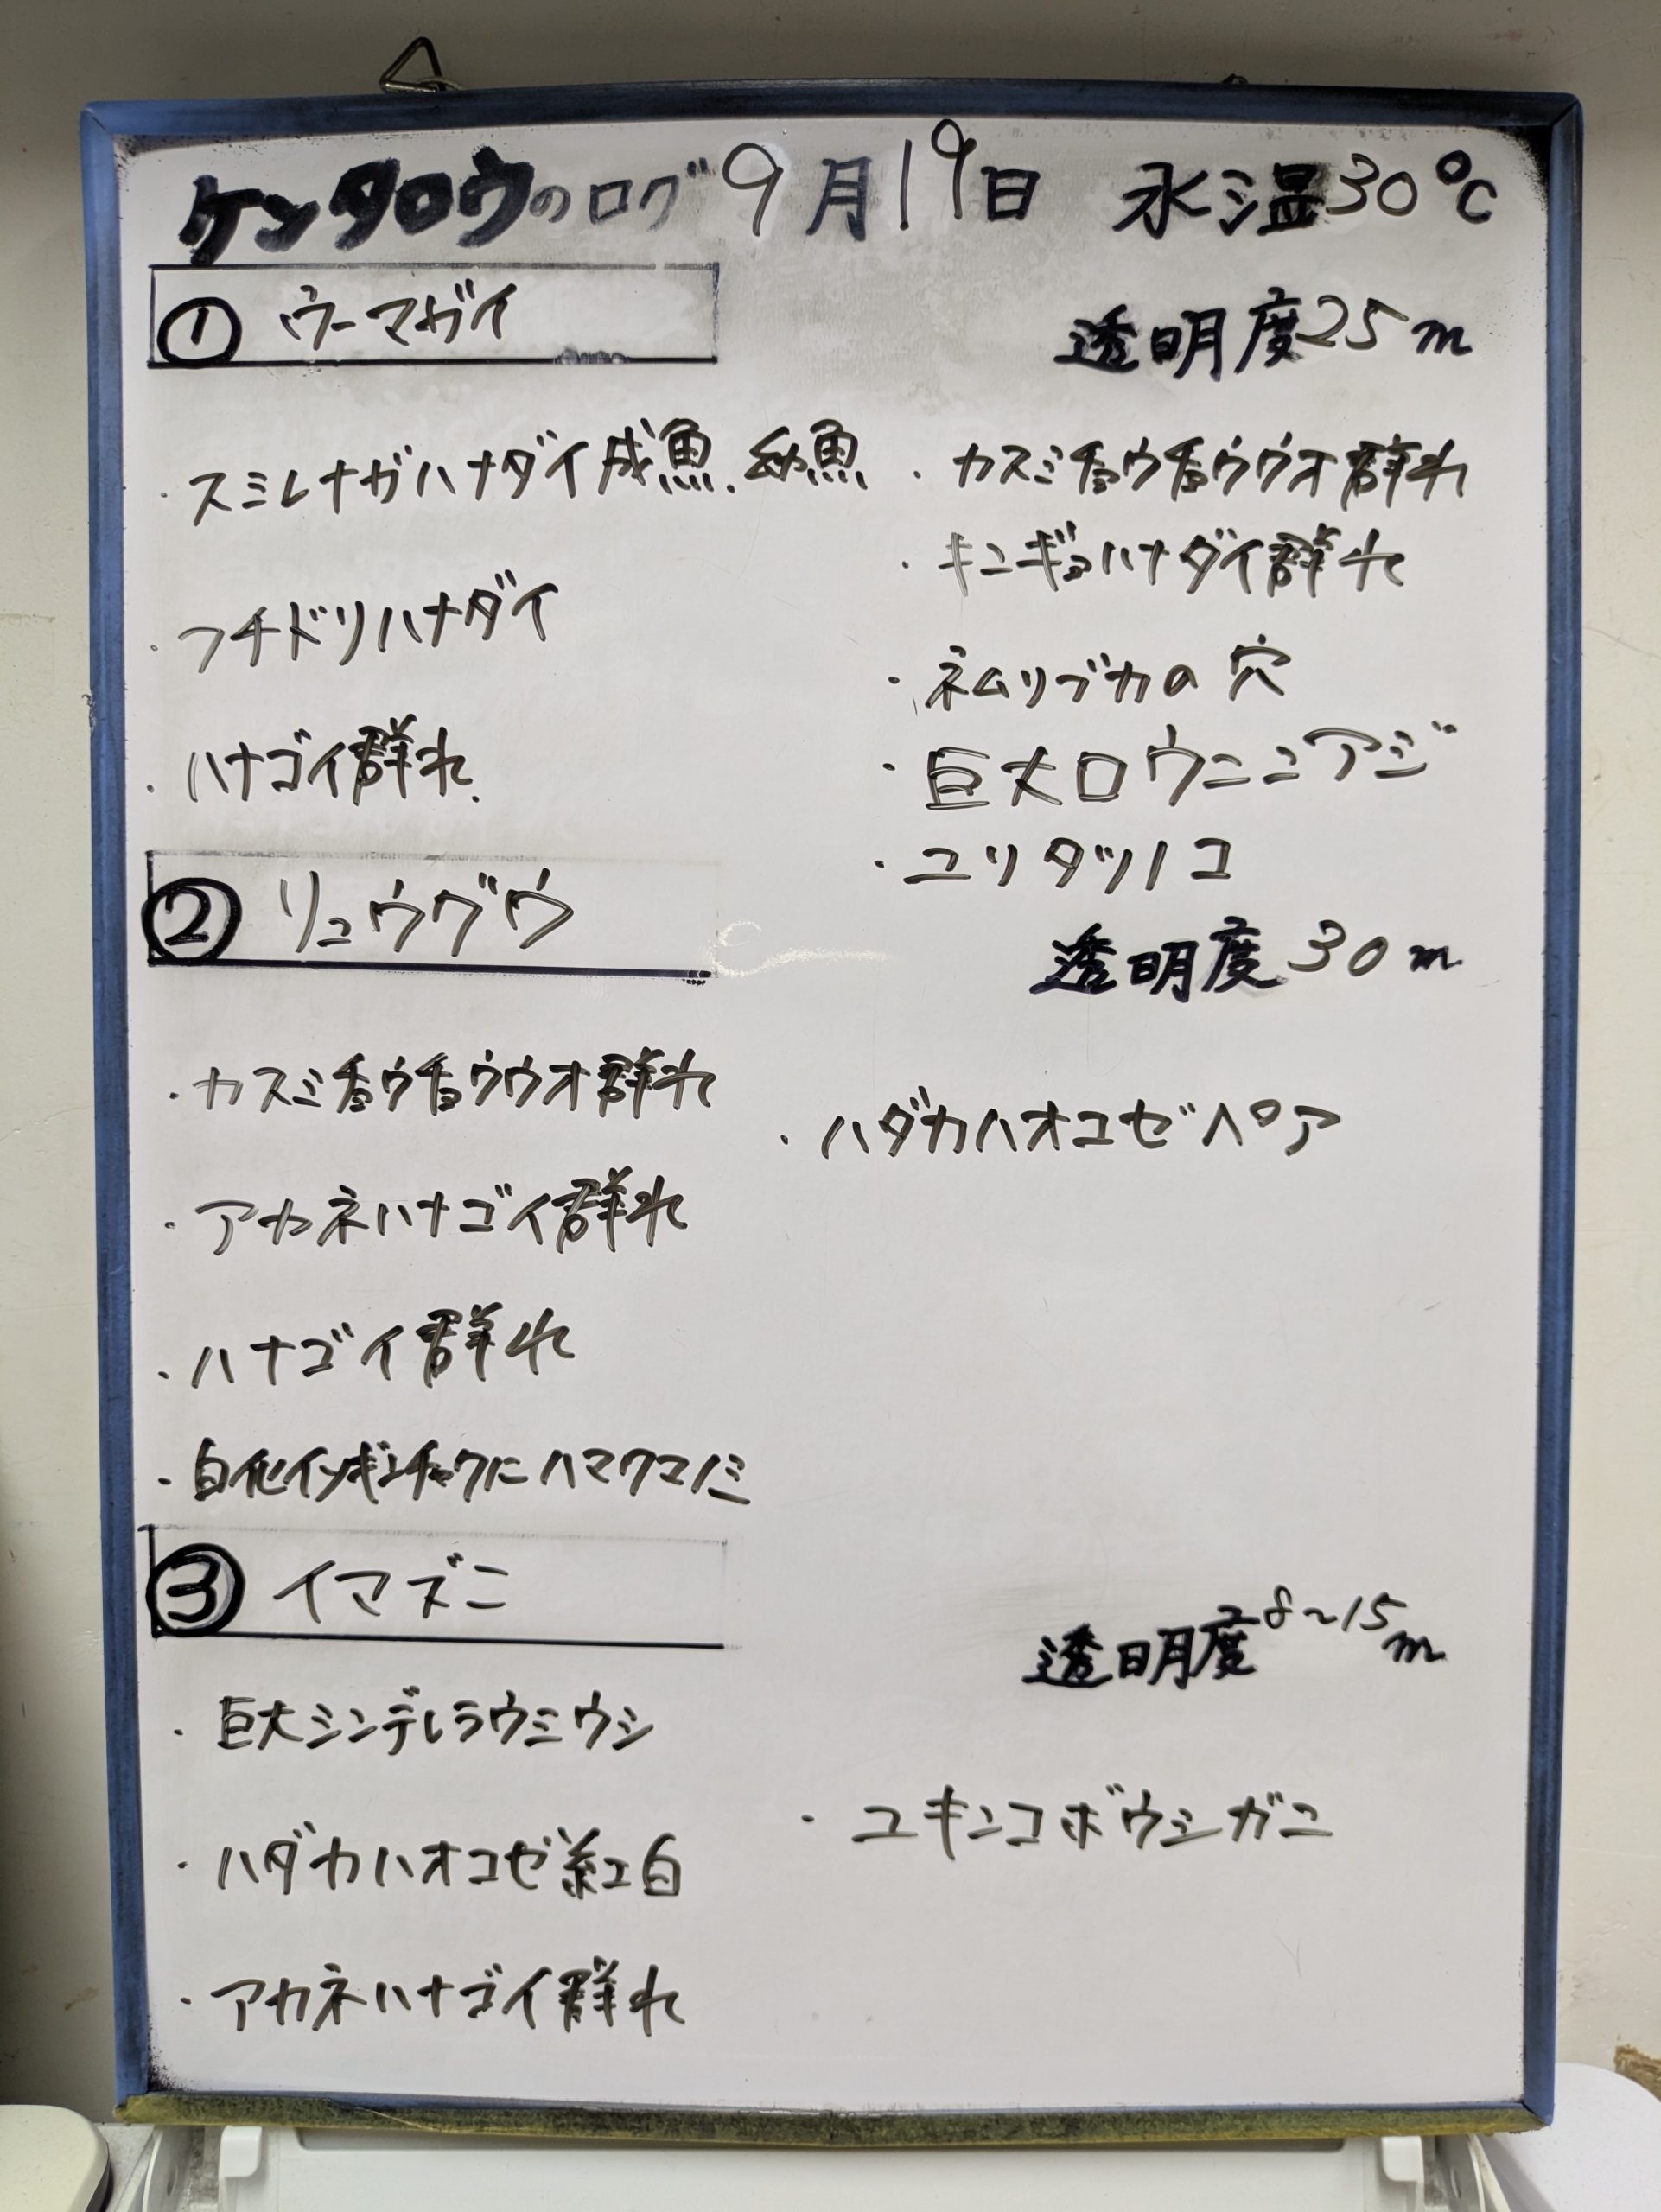 ケンタロウのログ 9月19日 水温30℃
① ウーマガイ
透明度25m
・スミレナガハナダイ成魚.幼魚
・フチドリハナダイ
・ハナゴイ群れ
・カスミチョウチョウウオ群れ
・キンギョハナダイ群れ
・ネムリブカの穴
・巨大ロウニンアジ
・ユリタツノコ
② リュウグウ
透明度30m
・カスミチョウチョウウオ群れ
・アカネハナゴイ群れ
・ハナゴイ群れ
・白化イソギンチャクにハマクマノミ
・ハダカハオコゼペア
③ イマズニ
透明度8~15m
・巨大シンデレラウミウシ
・ハダカハオコゼ紅白
・アカネハナゴイ群れ
・ユキンコボウシガニ